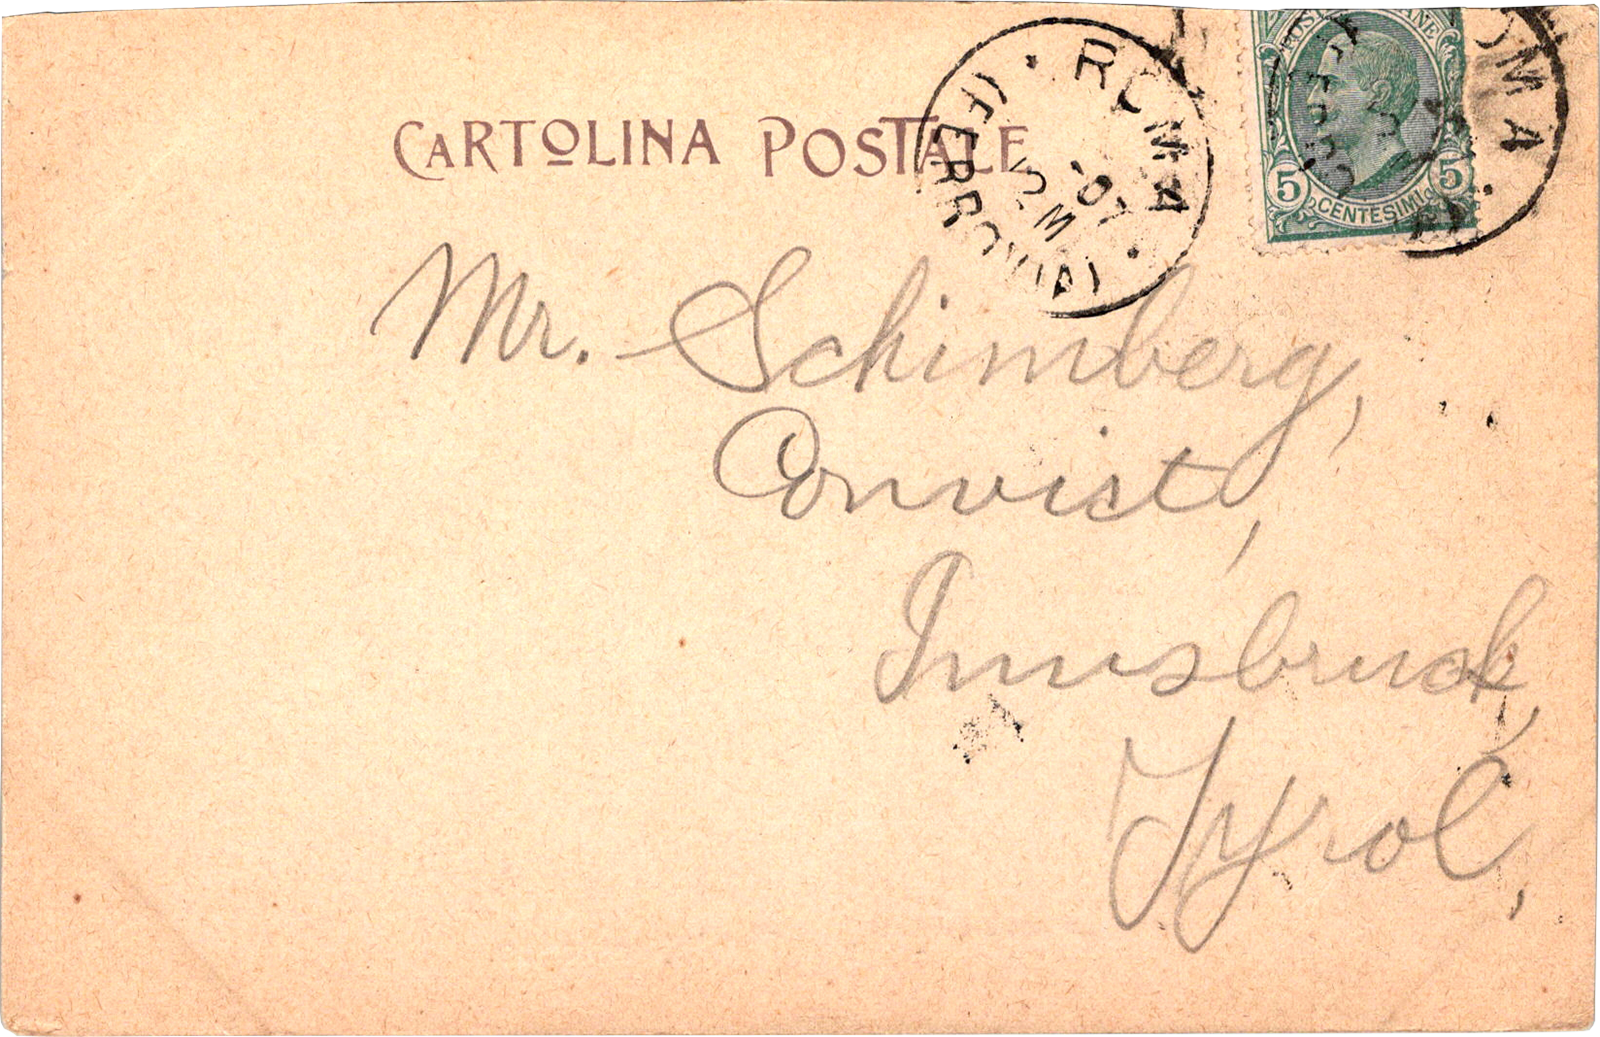 CARTOLINA POSTALE
ROMA
(FERROVIA)
'07
OMA
5 CENTESIMI 5
Mr. Schimberg,
Convict,
Innsbruck,
Tyrol,